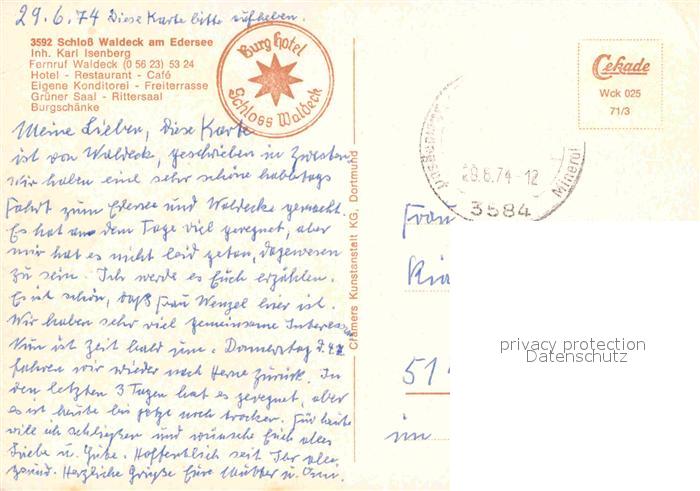 29.6.74 Diese Karte bitte aufheben.
3592 Schloß Waldeck am Edersee
Inh. Karl Isenberg
Fernruf Waldeck (0 56 23) 53 24
Hotel - Restaurant - Café
Eigene Konditorei - Freiterrasse
Grüner Saal - Rittersaal
Burgschänke
Burg Hotel
Schloss Waldeck
Cekade
Wck 025
71/3
29.6.74-12
Mineral
3584
Meine Lieben, Diese Karte
ist von Waldeck, geschrieben in Zwesten,
Wir haben eine sehr schöne halbtags
Fahrt zum Edersee und Waldecke gemacht.
Es hat an dem Tage viel geregnet, aber
mir hat es nicht leid getan, dagewesen
zu sein. Ich werde es Euch erzählen.
Es ist schön, daß Frau Wenzel hier ist.
Wir haben sehr viel gemeinsame Interessen
Nun ist Zeit bald um. Donnerstag d. 4.
fahren wir wieder nach Herne zurück. In
den letzten 3 Tagen hat es geregnet, aber
es ist heute bis jetzt noch trocken. Für heute
will ich schließen und wünsche Euch alles
Liebe u. Gute. Hoffentlich seit Ihr alle
gesund. Herzliche Grüße Eure Mutter u. Omi.
Cramers Kunstanstalt KG, Dortmund
Frau
51
im
privacy protection
Datenschutz